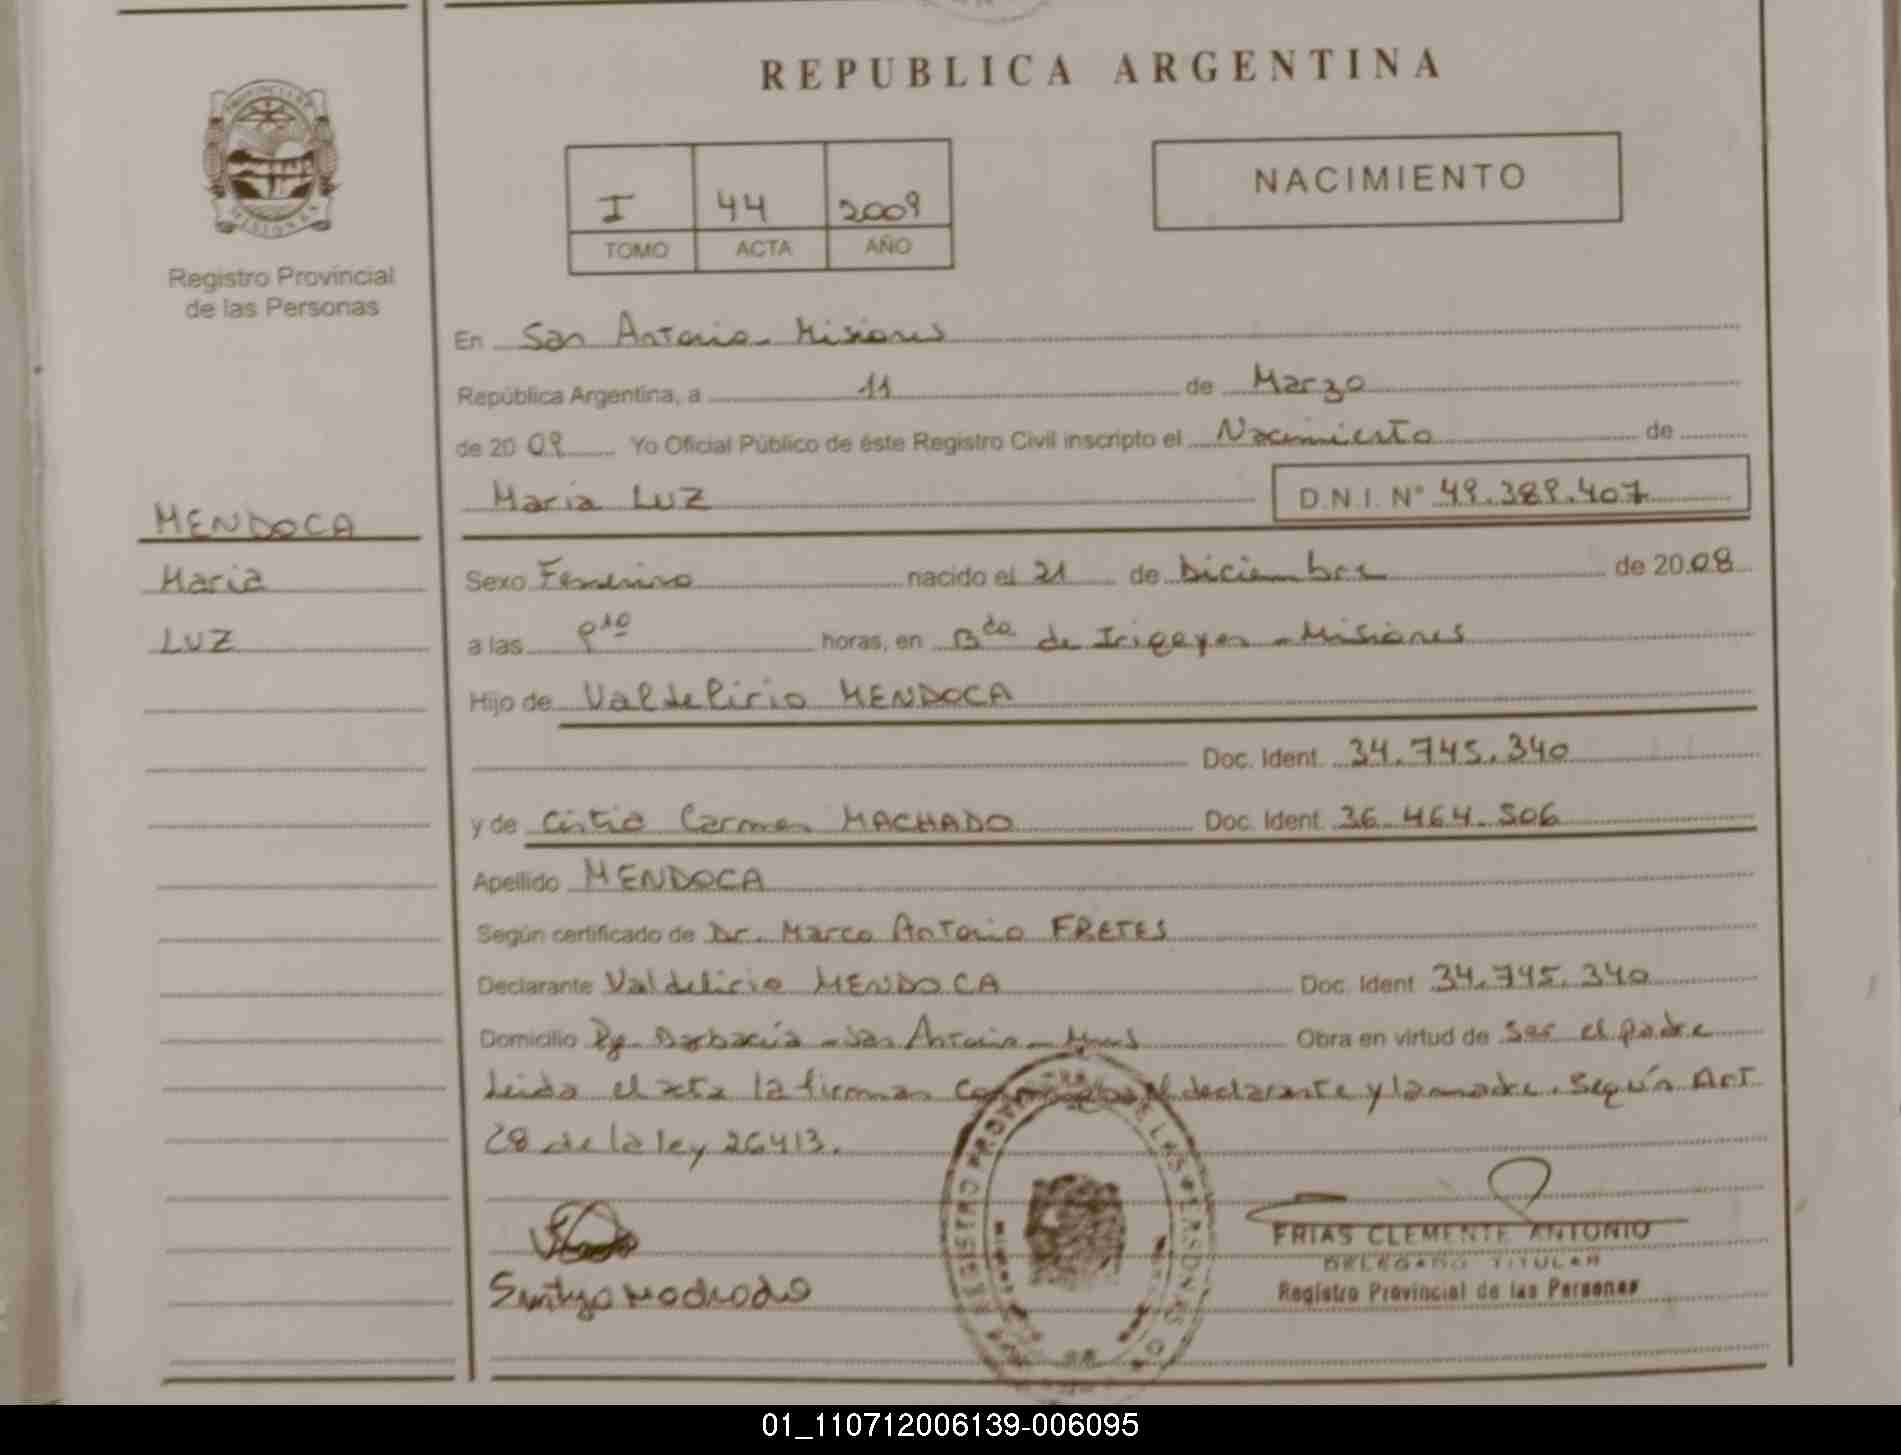 REPUBLICA ARGENTINA
PROVINCIA DE
MISIONES
Registro Provincial
de las Personas
I 44 2009
TOMO ACTA AÑO
NACIMIENTO
En San Antonio - Misiones
República Argentina, a 11 de Marzo
de 20 09 Yo Oficial Público de éste Registro Civil inscripto el Nacimiento de
Maria LUZ D.N.I. Nº 49.389.407
MENDOCA
Maria
LUZ
Sexo Femenino nacido el 21 de Diciembre de 20 08
a las horas, en Bdo de Irigoyen - Misiones
Hijo de Valdelirio MENDOCA
Doc. Ident. 34.745.340
y de Carmen MACHADO Doc. Ident. 36.464.506
Apellido MENDOCA
Según certificado de Dr. Marco Antonio FRETES
Declarante Valdelirio MENDOCA Doc. Ident 34.745.340
Domicilio - San Antonio - Mnes Obra en virtud de ser el padre
Leida el acta la firman el declarante y la madre. Según Art
28 de la ley 26413.
FRIAS CLEMENTE ANTONIO
DELEGADO TITULAR
Registro Provincial de las Personas
01_110712006139-006095